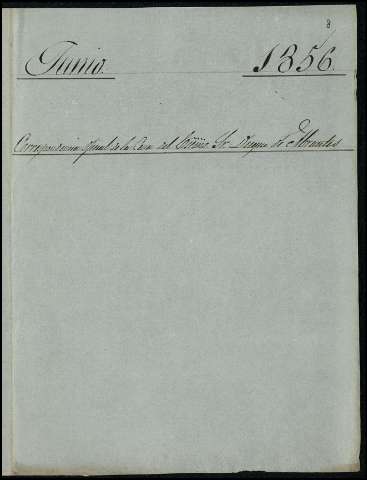 8
Junio. 1856.
Correspondencia oficial de la Casa del Excmo. Sr. Duque de Abrantes